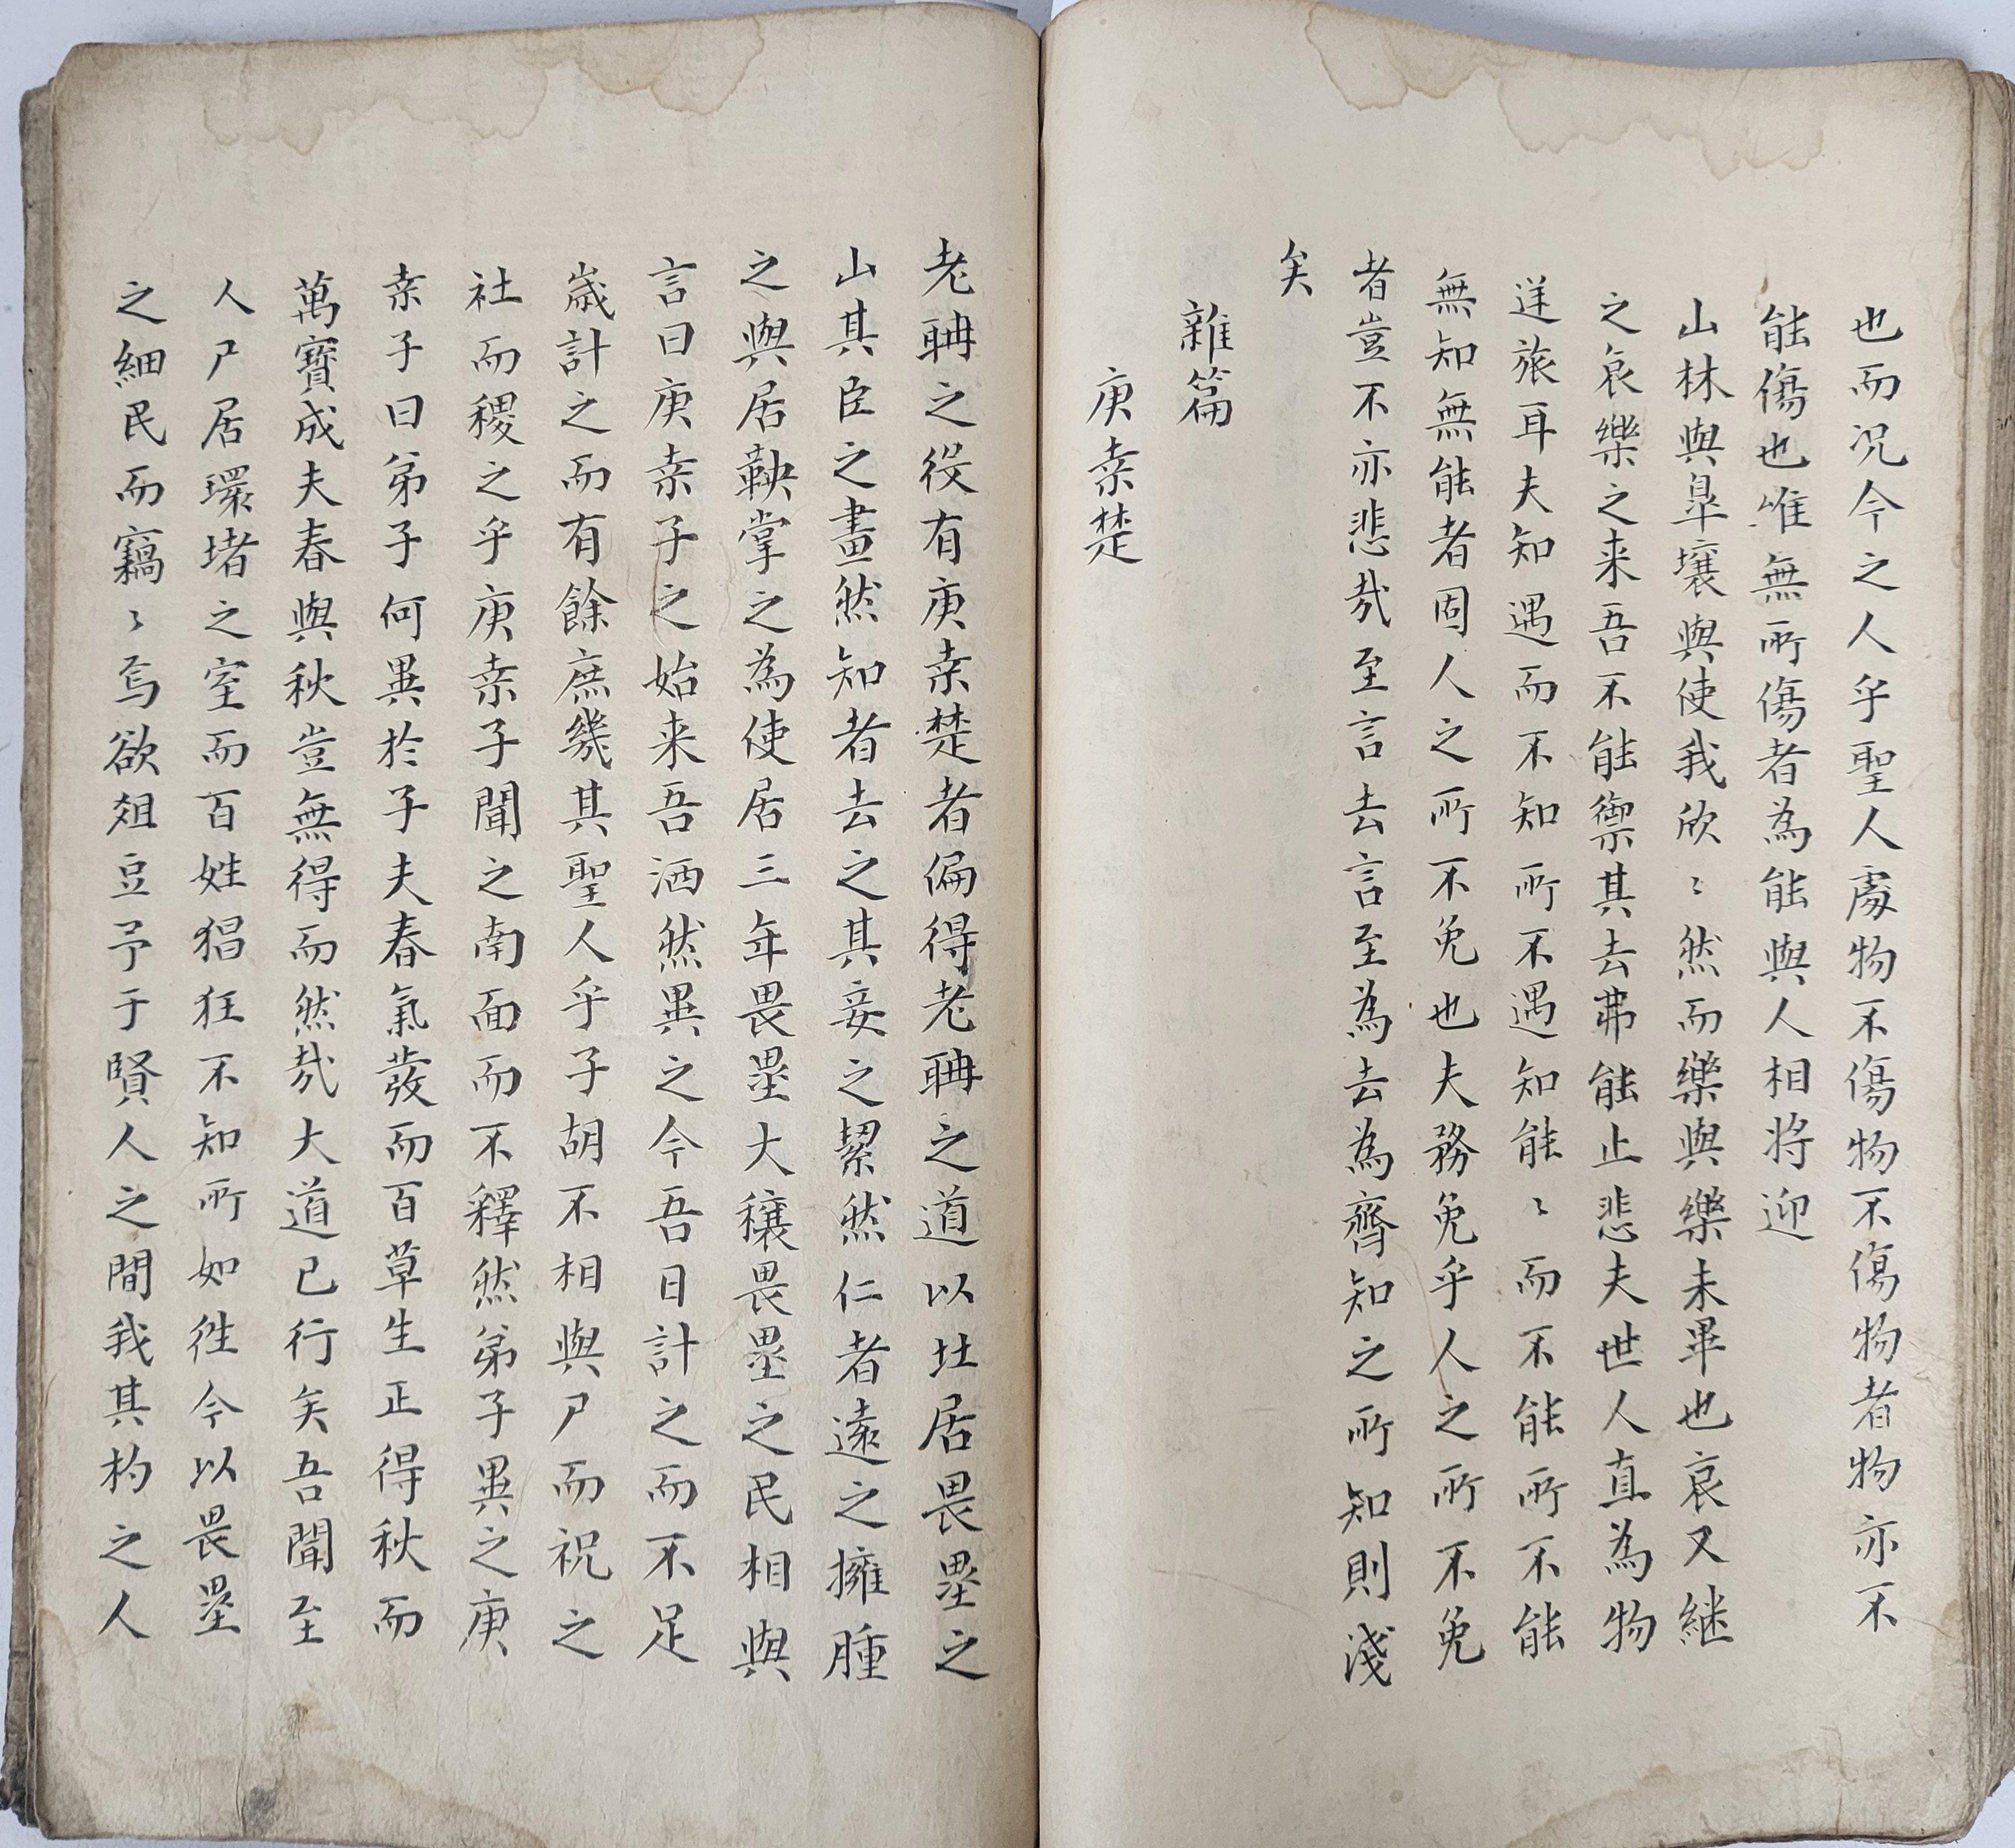 也而况今之人乎聖人處物不傷物不傷物者物亦不
能傷也唯無所傷者為能與人相將迎
山林與皐壤與使我欣〻然而樂與樂未畢也哀又継
之哀樂之来吾不能禦其去弗能止悲夫世人直為物
逆旅耳夫知遇而不知所不遇知能〻而不能所不能
無知無能者固人之所不免也夫務免乎人之所不免
者豈不亦悲哉至言去言至為去為齊知之所知則淺
矣
雜篇
庚桑楚
老聃之役有庚桑楚者偏得老聃之道以北居畏壘之
山其臣之畫然知者去之其妾之絜然仁者遠之擁腫
之與居鞅掌之為使居三年畏壘大穰畏壘之民相與
言曰庚桑子之始来吾洒然異之今吾日計之而不足
歲計之而有餘庶幾其聖人乎子胡不相與尸而祝之
社而稷之乎庚桑子聞之南面而不釋然弟子異之庚
桑子曰弟子何異於予夫春氣發而百草生正得秋而
萬寶成夫春與秋豈無得而然哉大道已行矣吾聞至
人尸居環堵之室而百姓猖狂不知所如徃今以畏壘
之細民而竊〻焉欲俎豆予于賢人之間我其杓之人